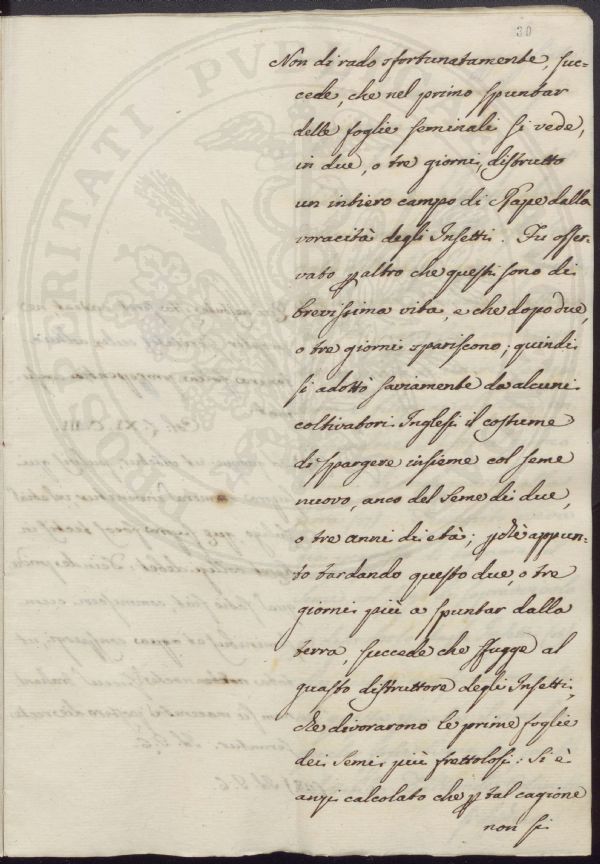 30
Non di rado sfortunatamente suc-
cede, che nel primo spuntar
delle foglie seminali si vede,
in due, o tre giorni, distrutto
un intiero campo di Rape dalla
voracità degli Insetti. Fu osser-
vato p altro che questi sono di
brevissima vita, e che dopo due,
o tre giorni spariscono; quindi
si adottò saviamente da alcuni
coltivatori Inglesi il costume
di spargere insieme col seme
nuovo, anco del seme di due,
o tre anni di età; pchè appun-
to tardando questo due, o tre
giorni più a spuntar dalla
terra, succede che sfugge al
guasto distruttore degli Insetti,
che divorarono le prime foglie
dei semi più frettolosi: Si è
anzi calcolato che p tal cagione
non si
PROSPERITATI PUBLICAE